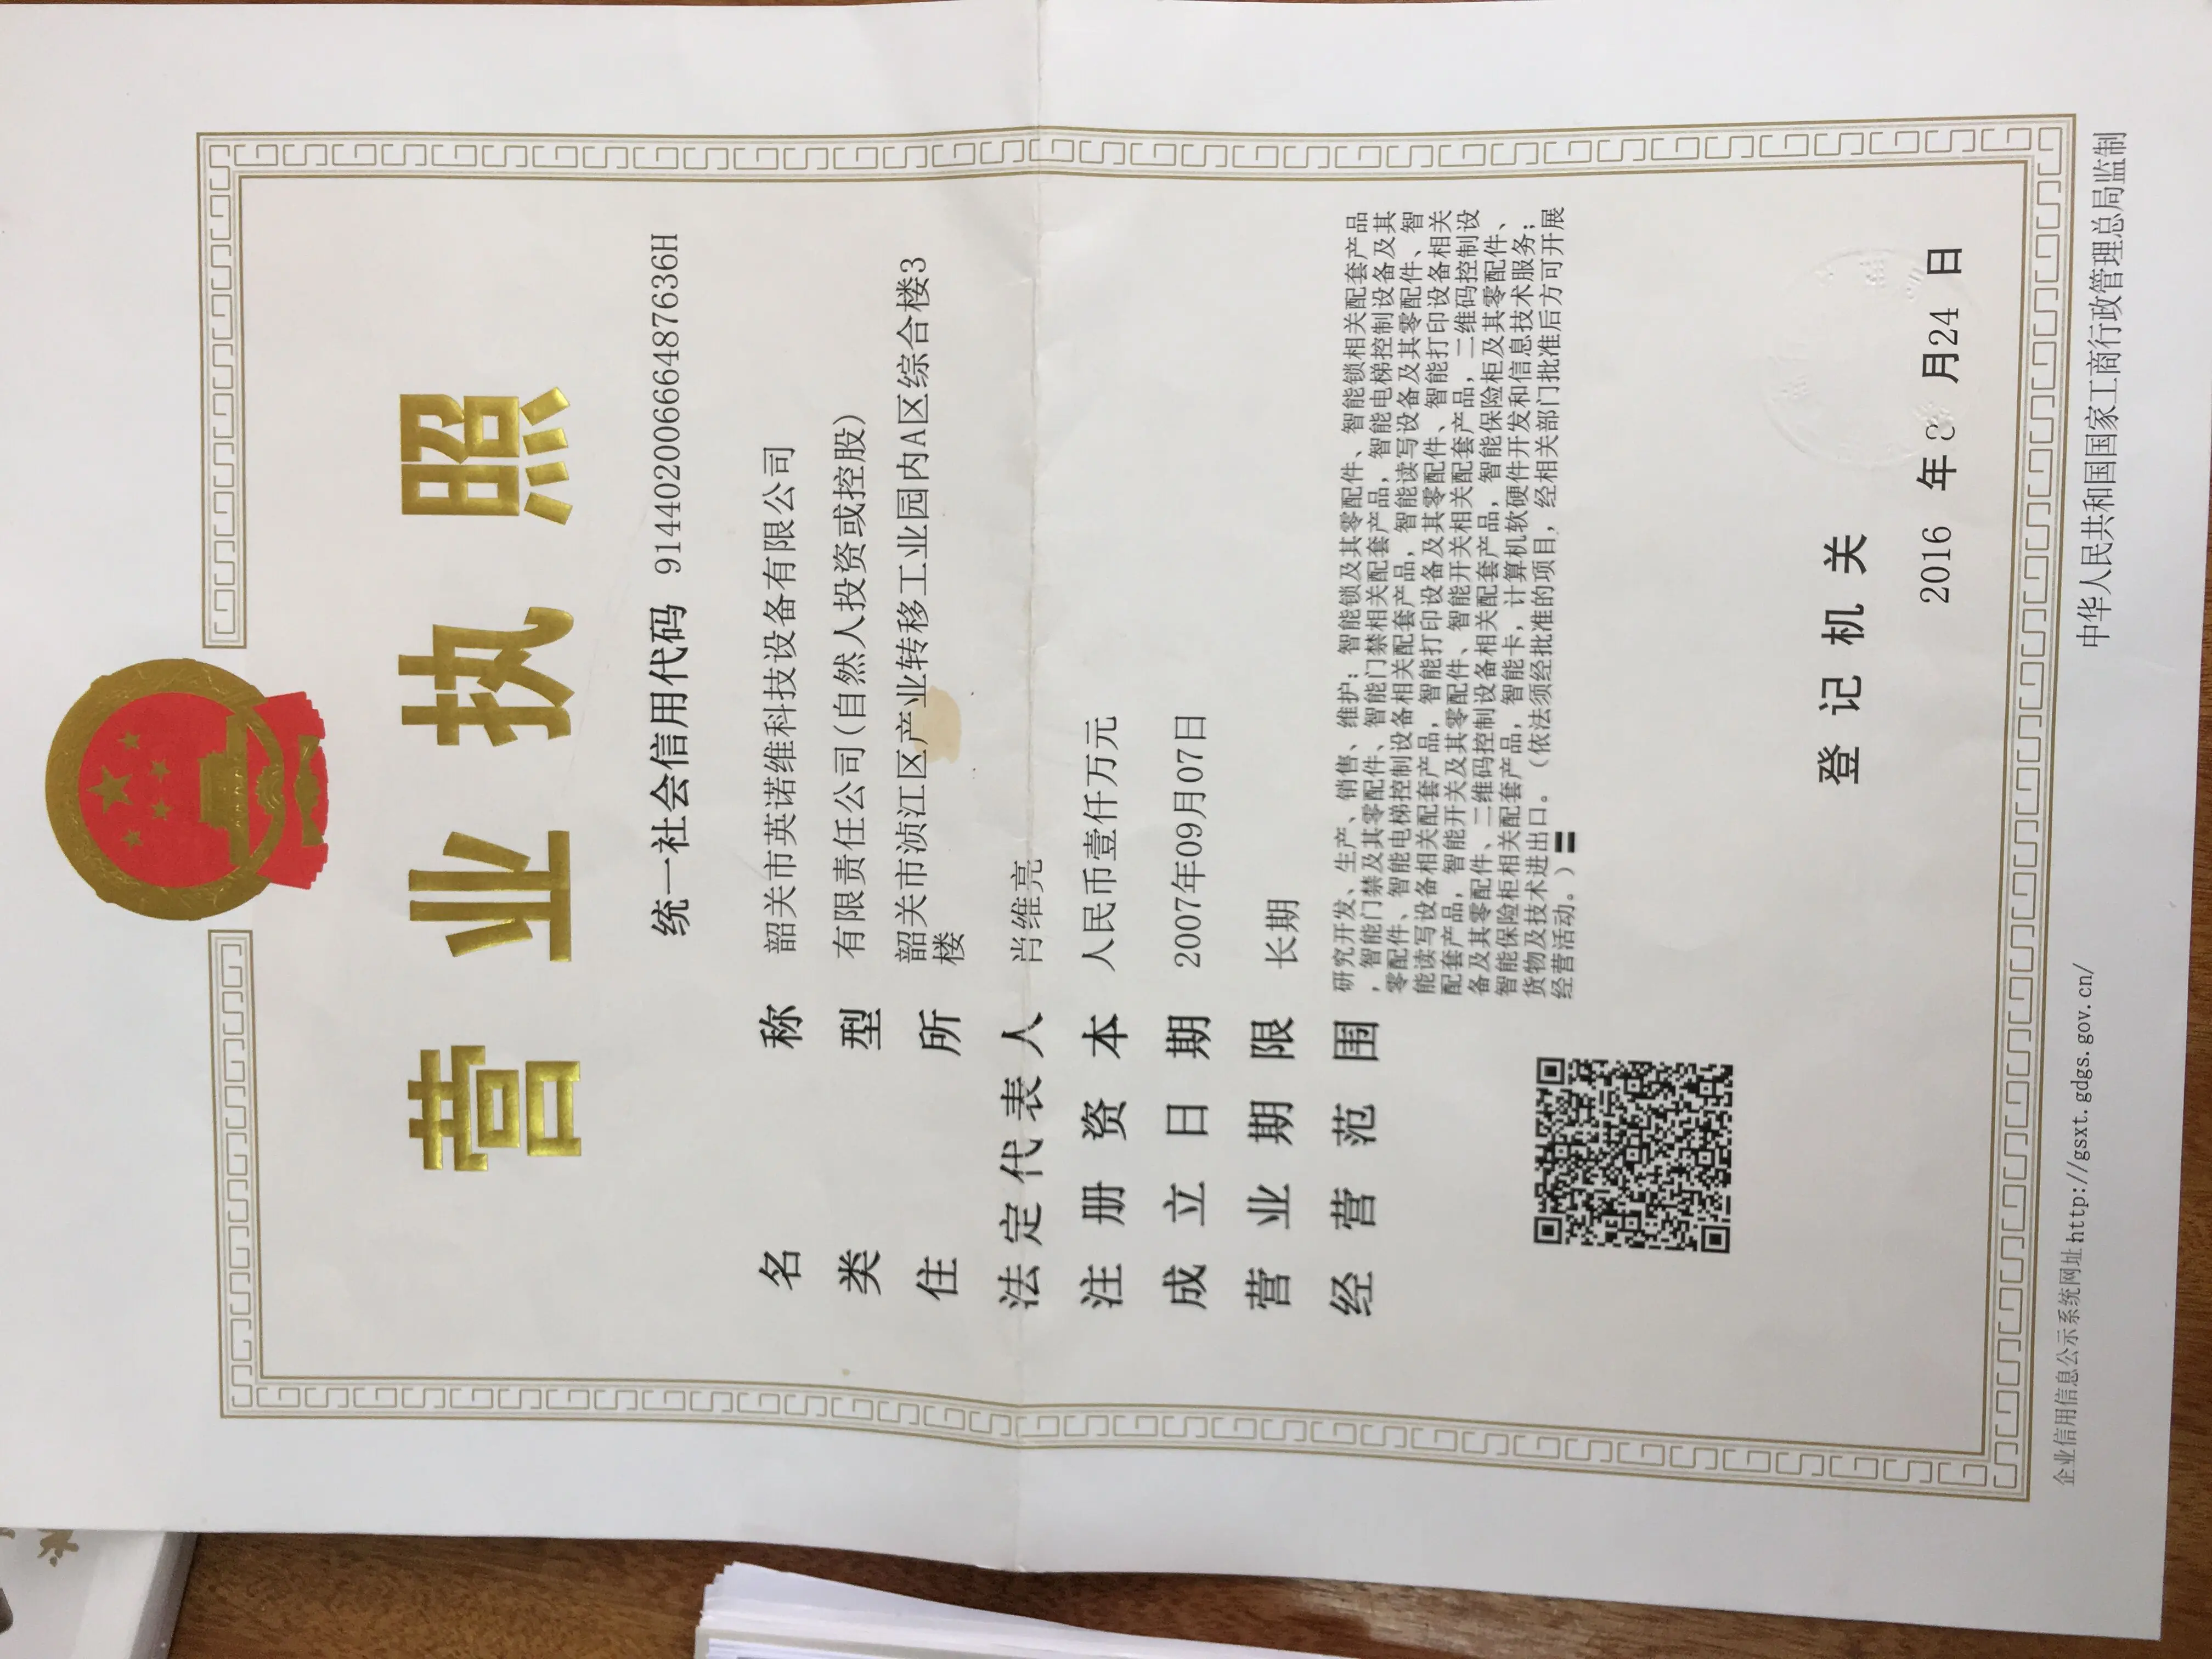 营业执照
统一社会信用代码 91440200666487636H
名称 韶关市英诺维科技设备有限公司
类型 有限责任公司(自然人投资或控股)
住所 韶关市浈江区产业转移工业园内A区综合楼3
楼
法定代表人 肖维亮
注册资本 人民币壹仟万元
成立日期 2007年09月07日
营业期限 长期
经营范围 研究开发、生产、销售、维护：智能锁及其零配件、智能锁相关配套产品
，智能门禁及其零配件、智能门禁相关配套产品，智能电梯控制设备及其
零配件、智能电梯控制设备相关配套产品，智能读写设备及其零配件、智
能读写设备相关配套产品，智能打印设备及其零配件、智能打印设备相关
配套产品，智能开关及其零配件、智能开关相关配套产品，二维码控制设
备及其零配件、二维码控制设备相关配套产品，智能保险柜及其零配件、
智能保险柜相关配套产品，智能卡，计算机软硬件开发和信息技术服务；
货物及技术进出口。（依法须经批准的项目，经相关部门批准后方可开展
经营活动。）
登记机关
2016 年 月24 日
企业信用信息公示系统网址http://gsxt.gdgs.gov.cn/
中华人民共和国国家工商行政管理总局监制